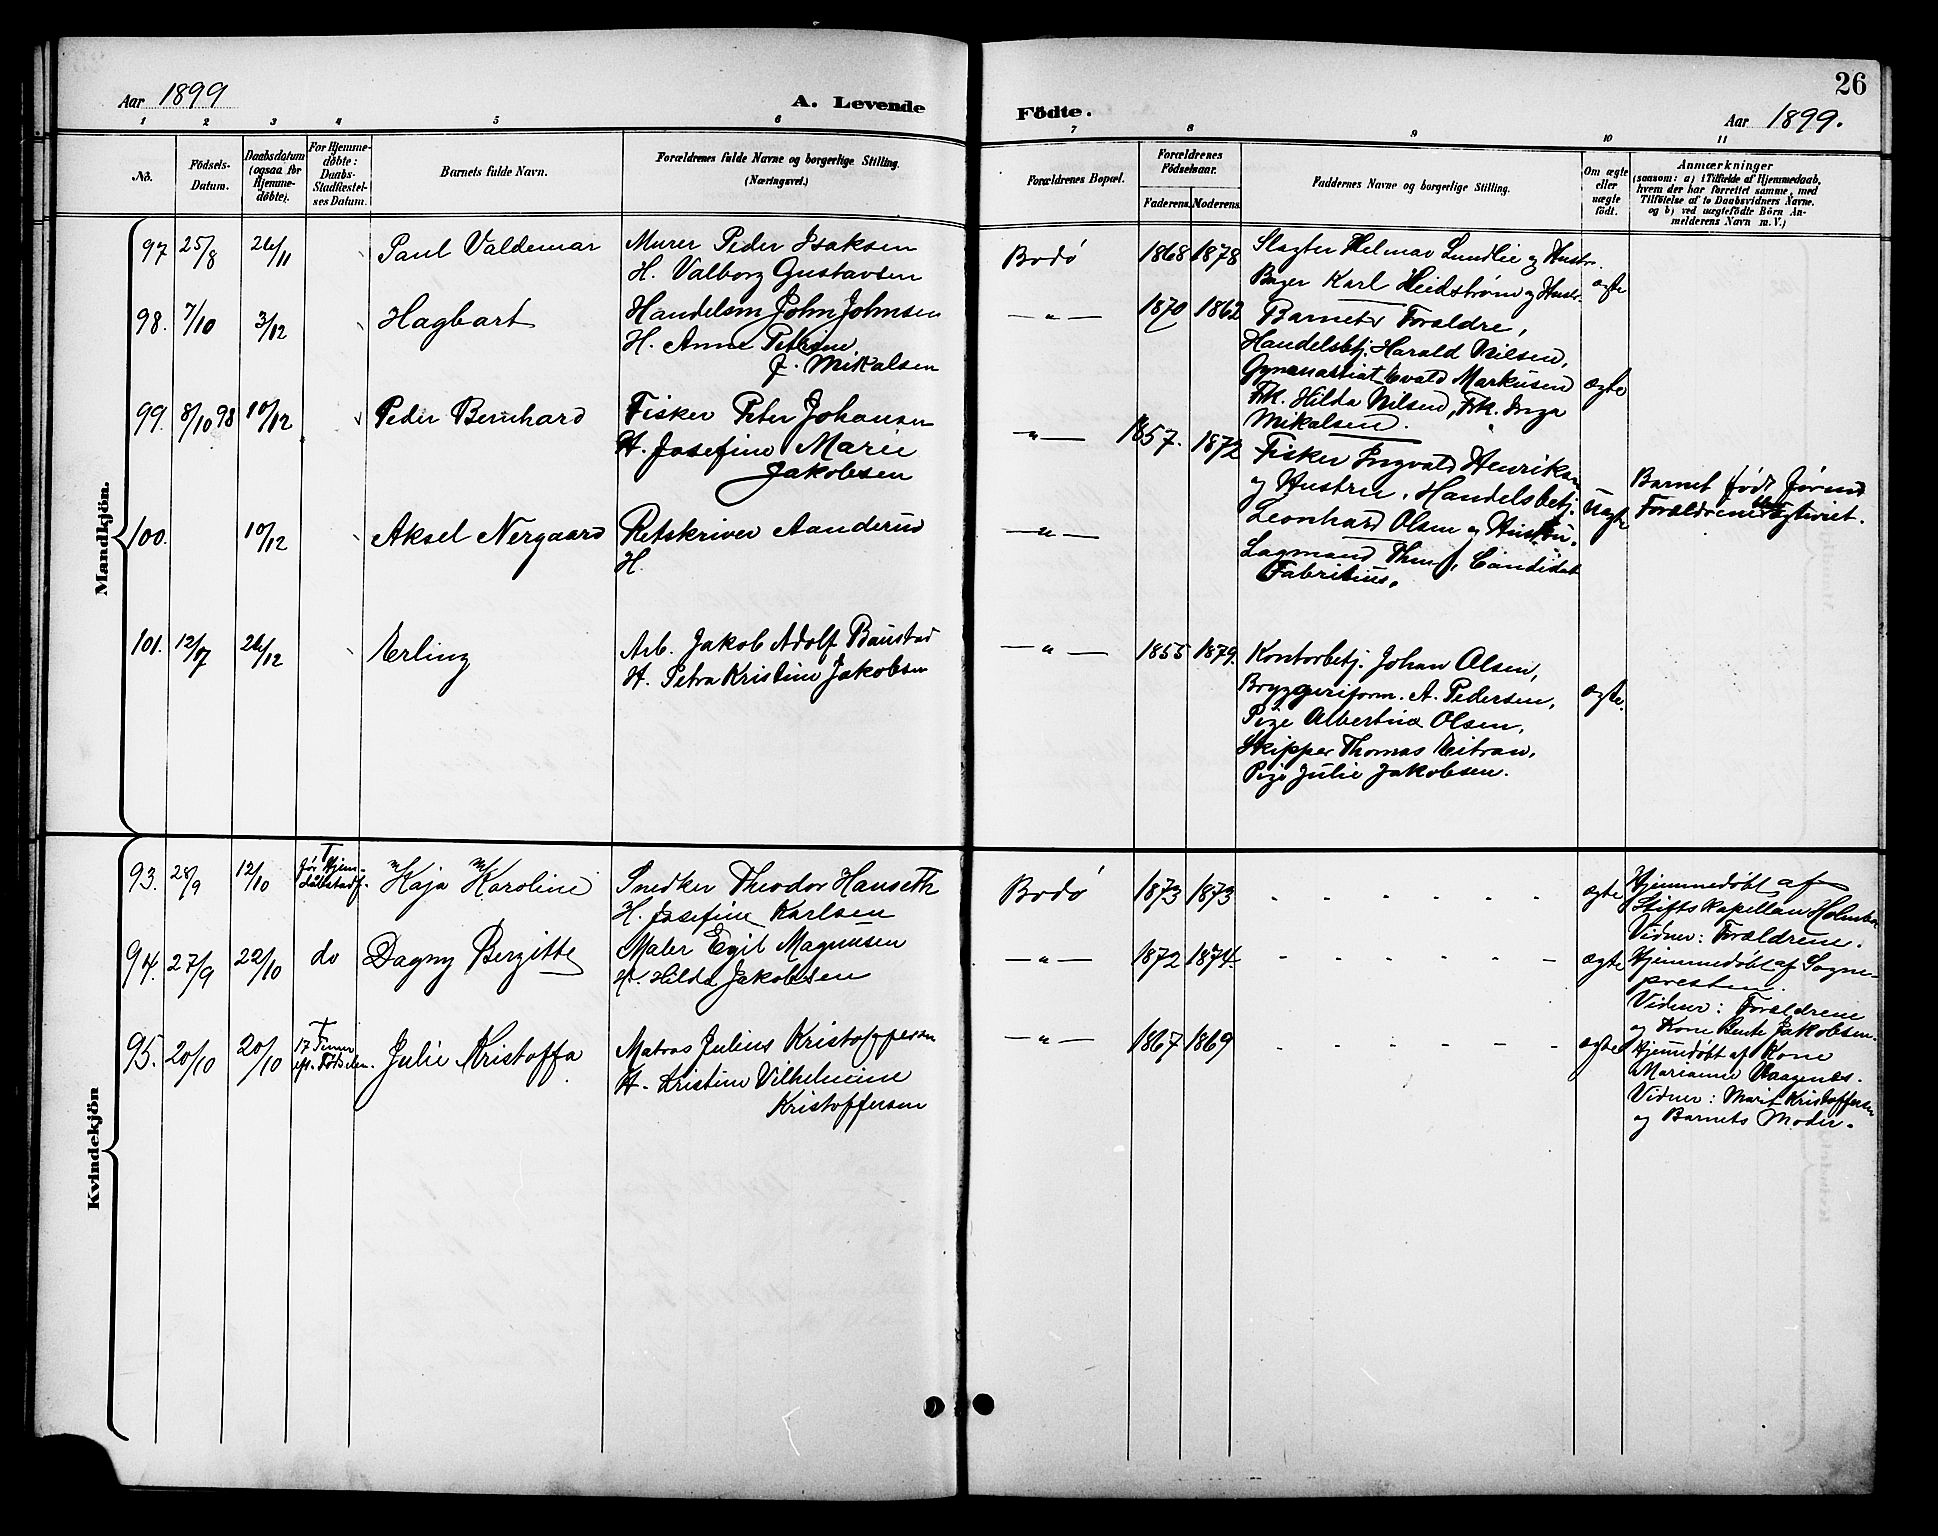 Aar 1899
A. Levende
1 2 3 4 5 6
No.
Födsels-
Datum.
Daabsdatum
(ogsaa for
Hjemme-
døbte).
For Hjemme-
døbte:
Daabs-
Stadfæstel-
ses Datum.
Barnets fulde Navn.
Forældrenes fulde Navne og borgerlige Stilling.
(Næringsvei.)
Mandkjön.
97 25/8 26/11 Paul Valdemar Murer Peder Isaksen
H. Valborg Gustavsen
98. 7/10 3/12 Hagbart Handelsm John Johnsen
H. Anne Petrine
J. Mikalsen
99. 8/10 98 10/12 Peder Bernhard Fisker Peter Johansen
H. Josefine Marie
Jakobsen
100. 10/12 Aksel Nergaard Retskriver Aanderud
H.
101. 12/07 26/12 Erling Arb. Jakob Adolf Baustad
H. Petra Kristine Jakobsen
Kvindekjön
93. 28/9 12/10 Kaja Karoline Snedker Theodor Hanseth
H. Josefine Karlsen
94. 27/9 22/10 do Dagny Bergitte Maler Egil Magnusen
H. Hilda Jakobsen
95. 20/10 20/10 17 Timer
eft. Födselen. Julie Kristoffa Matros Julius Kristoffersen
H. Kristine Vilhelmine
Kristoffersen
26
Födte.
Aar 1899.
7 8 9 10 11
Forældrenes Bopæl.
Forældrenes
Födselsaar.
Faderens. Moderens.
Faddernes Navne og borgerlige Stilling.
Om ægte
eller
uægte
født.
Anmærkninger
(saasom: a) i Tilfælde af Hjemmedaab,
hvem der har forrettet samme, med
Tilföielse af to Daabsvidners Navne.
og b) ved uægtefödte Börn An-
melderens Navn m. V.)
Bodø 1868 1878 Slagter Helmar Lundlie og Hustr.
Bager Karl Heidstrøm og Hustr. ægte
— " — 1870 1862 Barnets Forældre,
Handelsbetj. Harald Nilsen,
Gymnasiast Evald Markusen ægte
Frk. Hilda Nilsen, Frk. Inga
Mikalsen.
— " — 1857. 1872 Fisker Ingvald Henriksen
og Hustru, Handelsbetj.
Leonhard Olsen og Hustru. Uægte
Barnet født førend
Forældrene
— " —
Lagmand Candidat
Fabritius.
— " — 1855 1879. Kontorbetj. Johan Olsen,
Bryggeriform. A. Pedersen, ægte.
Pige Albertine Olsen,
Skipper Thomas Eitran,
Pige Julie Jakobsen.
Bodø 1873 1873 - - - - - - ægte Hjemmedøbt af
Stiftskapellan
Vidner: Forældrene.
— " — 1872 1874. - - - - - - ægte Hjemmedøbt af Sogne-
presten.
Vidner: Forældrene
og Kone Bente Jakobsen.
— " — 1867 1869 - - - - - - ægte Hjemdøbt af Kone
Marianne Vaagenæs.
Vidner: Marit Kristoffersen
og Barnets Moder.